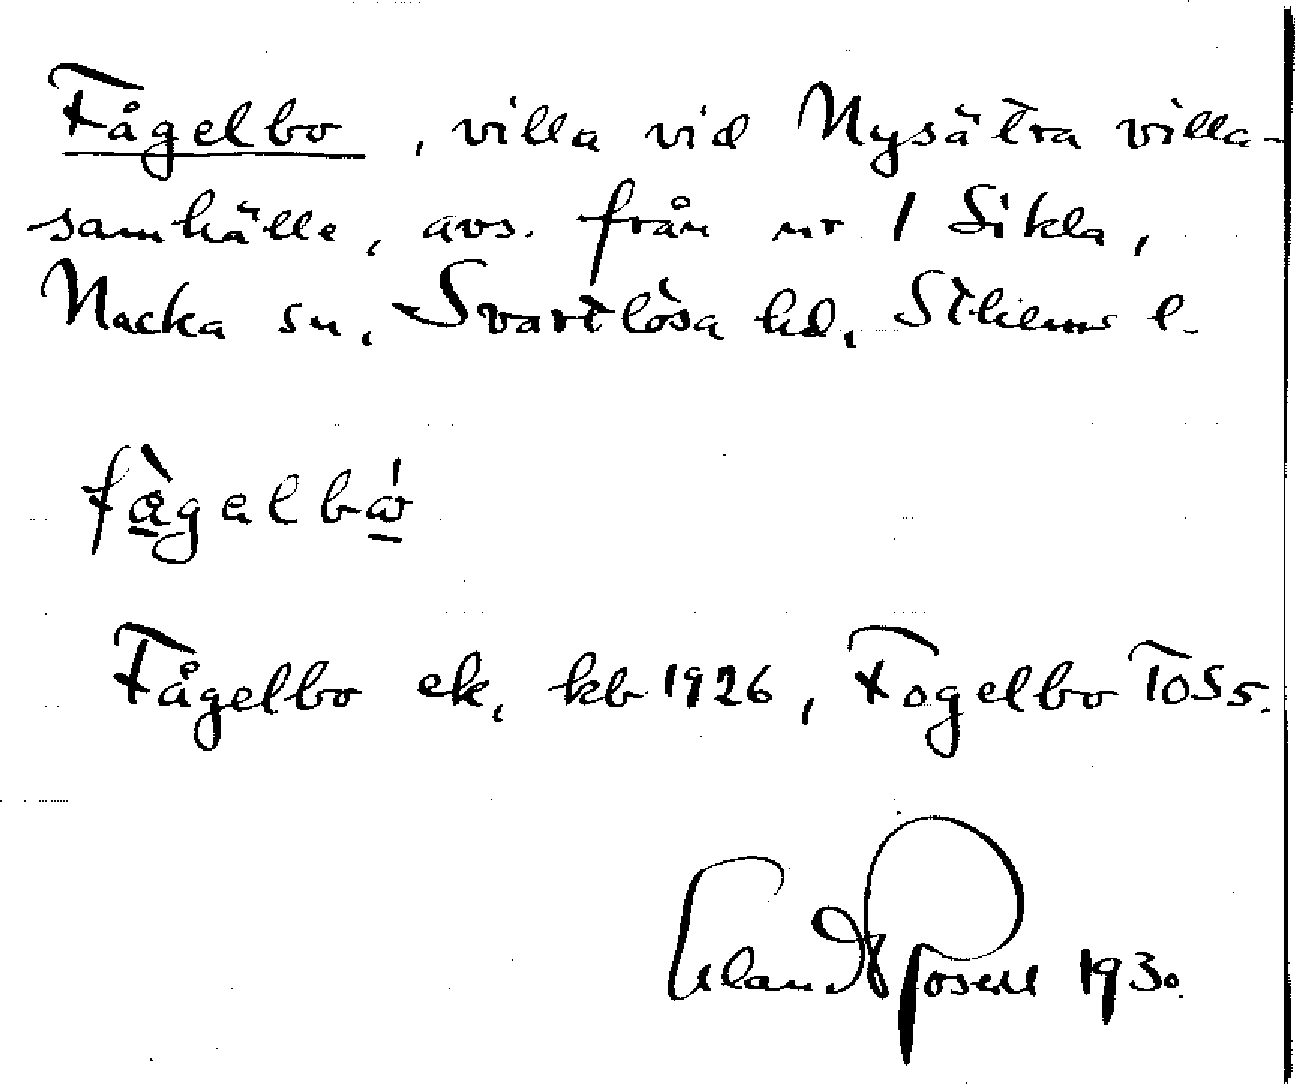 Fågelbo, villa vid Nysätra villa-
samhälle, avs. från nr 1 Sikla,
Nacka sn, Svartlösa hd, Sthlms l.
Fågelbo ek, kb 1926, Fogelbo TOS5.
Erland Rosell 1930.